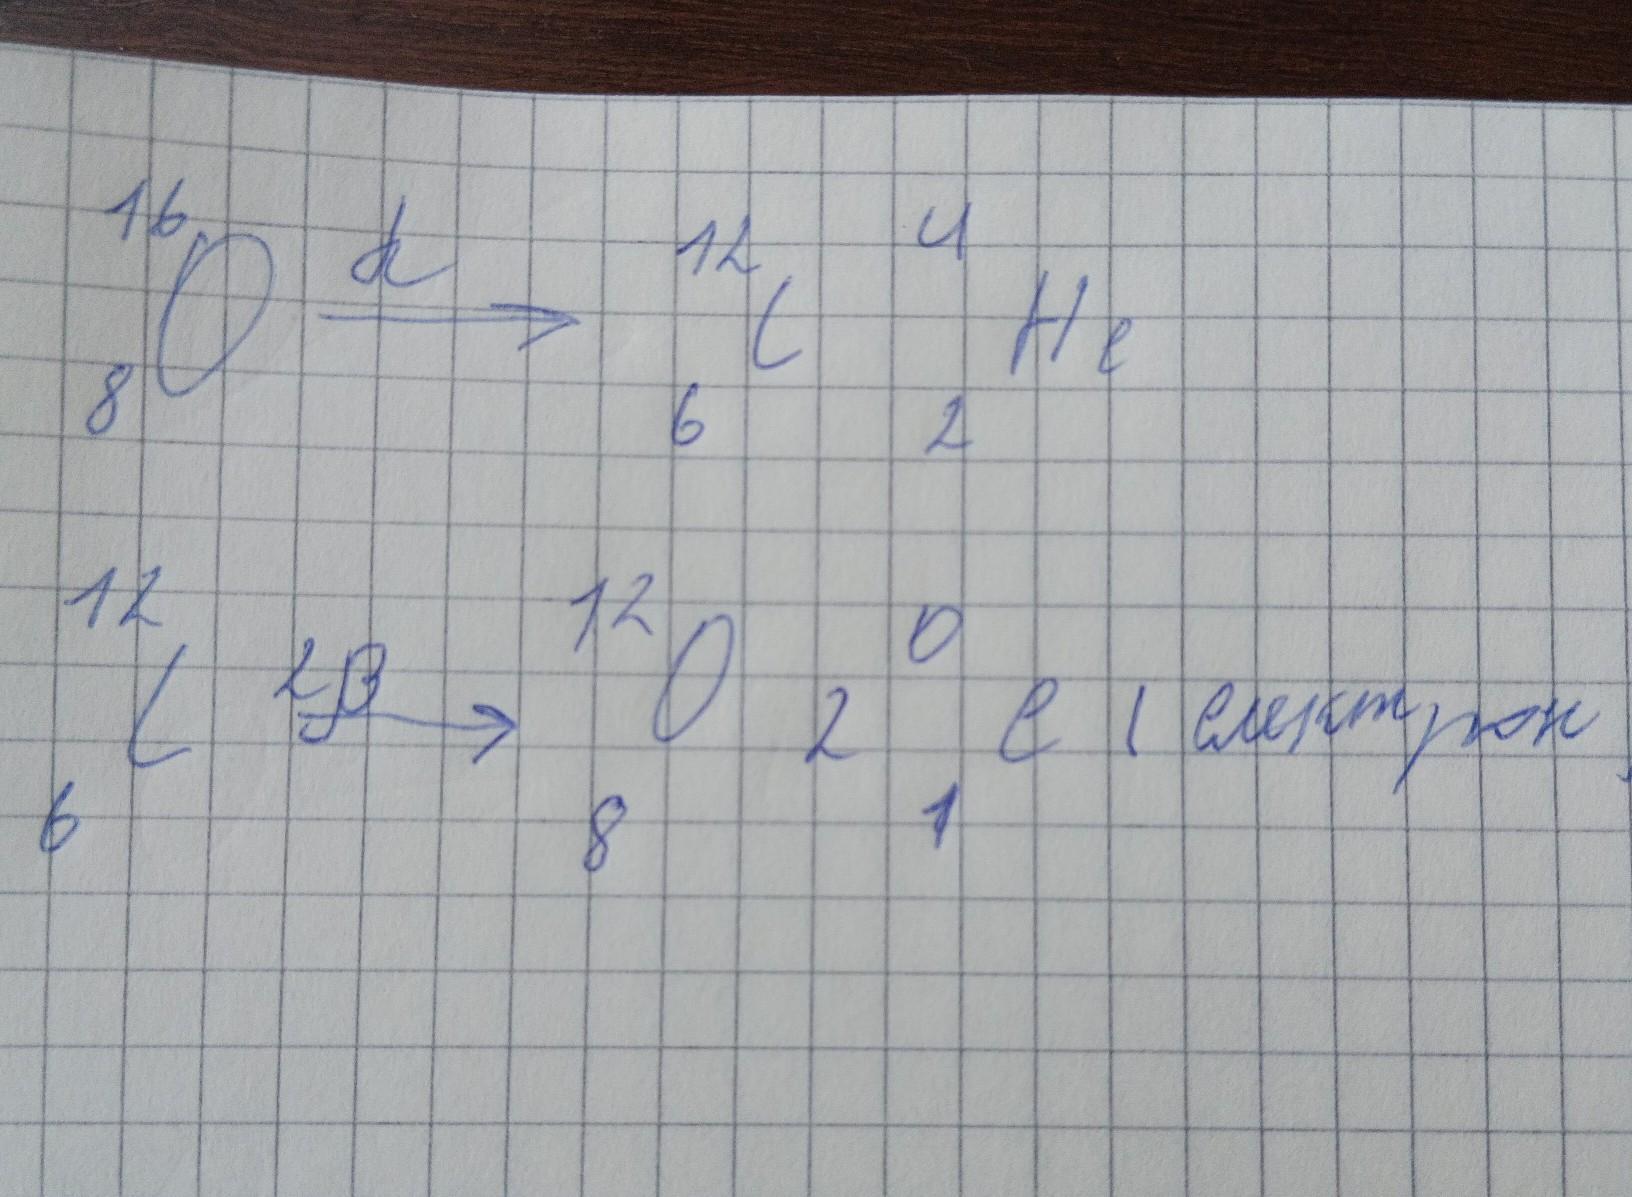 16 8 O α → 12 6 C 4 2 He
12 6 C 2β → 12 8 O 2 0 1 e ( електрон